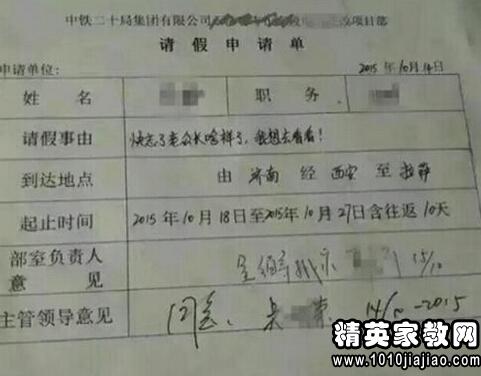 中铁二十局集团有限公司 改项目部
请假申请单
申请单位： 2015年10月14日
姓名 职务
请假事由 快忘了老公长啥样了，我想去看看！
到达地点 由 济南 经 西安 至 拉萨
起止时间 2015年10月18日至2015年10月27日含往返10天
部室负责人
意见 呈领导批示 15/10
主管领导意见 同意. 14/10-2015
精英家教网
www.1010jiajiao.com